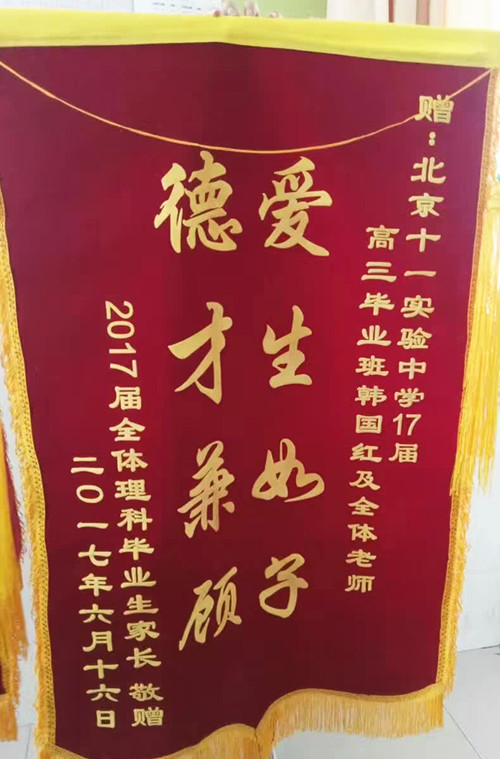 赠：北京十一实验中学17届
高三毕业班韩国红及全体老师
爱生如子
德才兼顾
2017届全体理科毕业生家长 敬赠
二〇一七年六月十六日